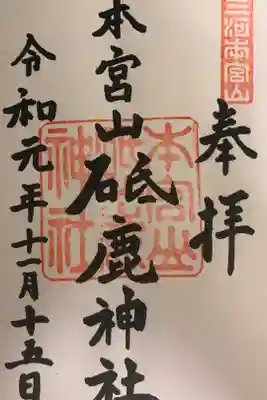 三河本宮山
奉拝
本宮山砥鹿神社
本宮山
砥鹿
神社
令和元年十一月十五日